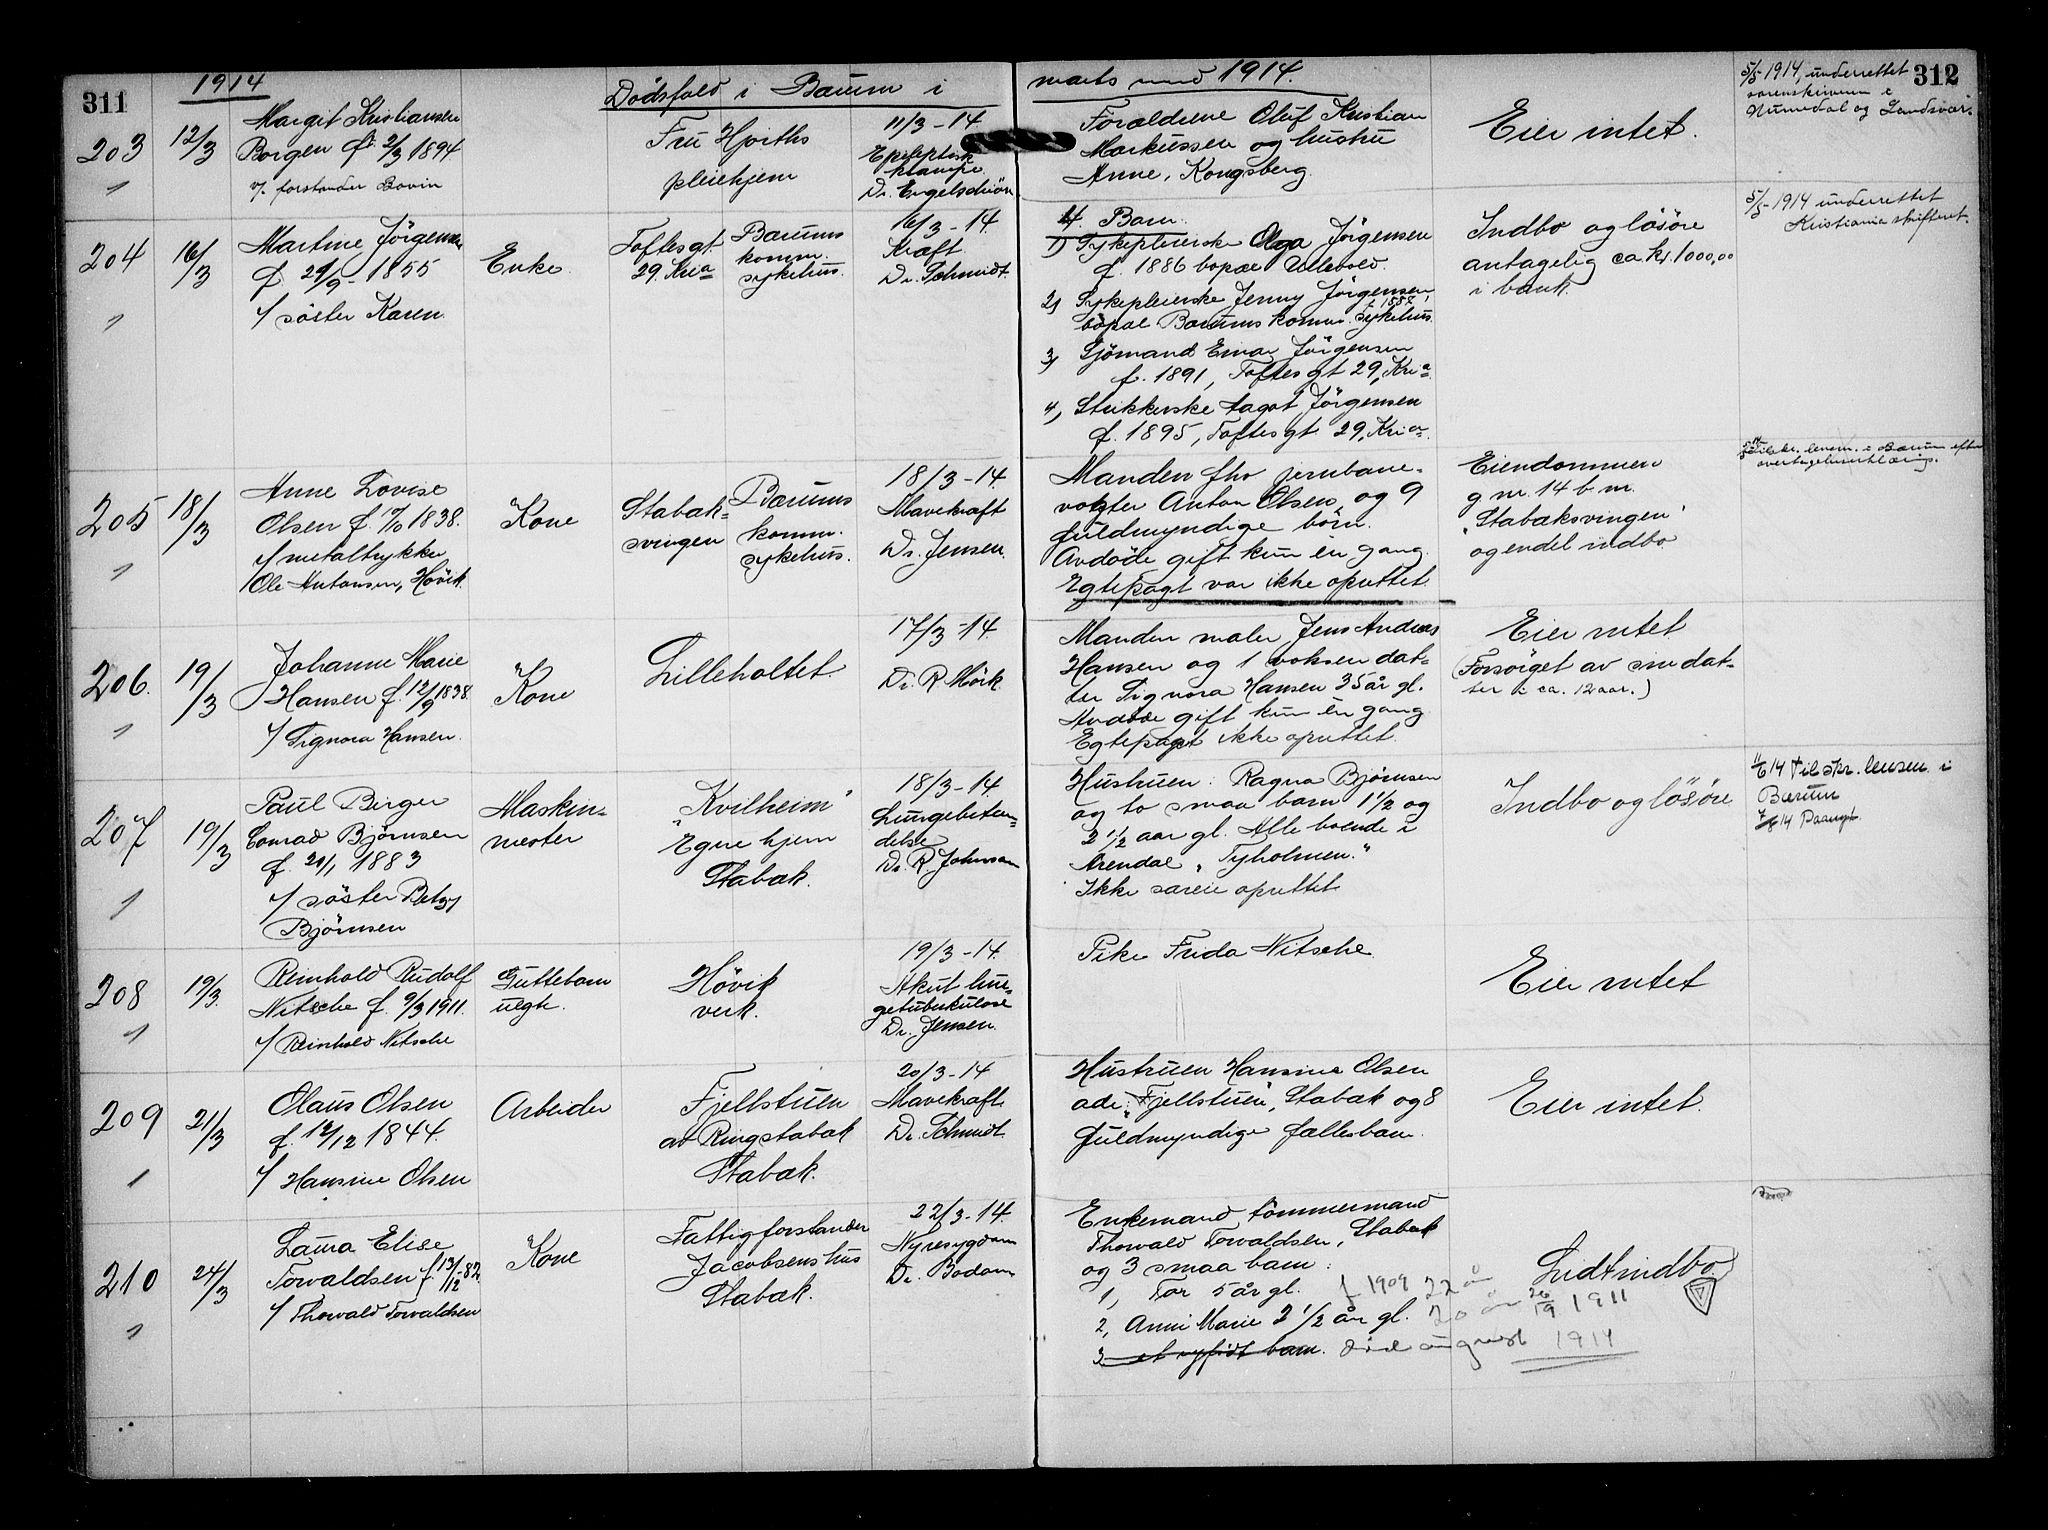 311
1914
Dødsfald i Bærum i
marts mnd 1914.
312
203
12/3
Margit Kristiansen
Borgen f. 2/3 1894
v. forstander Bovin
Fru Hjorths
pleiehjem
11/3-14
Epileptisk
krampe
Dr. Engelschiøn
Forældrene Oluf Kristian
Markussen og hustru
Anne, Kongsberg
Eier intet.
5/5-1914, underrettet
sorenskriveren i
Numedal og Sandsvær.
204
16/3
Martine Jörgensen
f. 29/9-1855
v/ söster Karen.
Enke.
Toftesgt
29. Kria
Bærums
komm.
sykehus.
16/3-14
Kræft
Dr. Schmidt.
4 Barn.
1) Sykepleierske Olga Jörgensen
f. 1886 bopæl Ullevold.
2) Sykepleierske Jenny Jörgensen
f. 1888,
bopæl Bærums komm. sykehus.
3) Sjömand Einar Jörgensen
f. 1891, Toftesgt 29, Kria
4) Strikkerske Aagot Jörgensen
f. 1895, Toftesgt 29, Kria.
Indbo og lösöre
antagelig ca. kr. 1000,00
i bank.
5/5-1914 underrettet
Kristiania skifteret.
205
18/3
Anne Lovise
Olsen f. 1838.
v/ metaltrykker
Ole Antonsen, Hövik
Kone
Stabæk-
svingen
Bærums
komm.
sykehus.
18/3-14.
Mavekræft
Dr. Jensen.
Manden fhv jernbane-
vogter Anton Olsen, og 9
fuldmyndige börn.
Avdöde gift kun én gang.
Egtepagt var ikke oprettet.
Eiendommen
g nr. 14 b nr.
"Stabæksvingen"
og endel indbo
lensm. i Bærum efter
overtagelseserklæring.
206.
19/3
Johanne Marie
Hansen f. 12/9 1838.
v/ Signora Hansen.
Kone
Lilleholtet
17/3-14.
Dr. R Mörk.
Manden maler Jens Andreas
Hansen og 1 voksen dat-
ter Signora Hansen 35 år gl.
Avdöde gift kun én gang
Egtepagt ikke oprettet.
Eier intet
(Forsörget av sin dat-
ter i ca. 12 aar.)
207
19/3
Paul Birger
Conrad Bjørnsen
f. 20/1 1883
v/ söster Betsy
Bjørnsen
Maskin-
mester
"Kvilheim"
Egne hjem
Stabæk.
18/3-14.
Lungebeten-
delse
Dr. R Johnsen
Hustruen: Ragna Bjørnsen
og to smaa barn 1 1/2 og
2 1/2 aar gl. Alle boende i
Arendal "Tyholmen."
Ikke særeie oprettet
Indbo og lösöre
11/6 14 tilskr. lensm. i
Bærum
7/8 14
208
19/3.
Reinhold Rudolf
Nitsche f. 9/3 1911.
v/ Reinhold Nitsche
Guttebarn
uegte.
Hövik
verk.
19/3-14.
Akut lun-
getuberkulose
Dr. Jensen.
Pike Frida Nitsche.
Eier intet
209
21/3
Olaus Olsen
f. 12/12 1844.
v/ Hansine Olsen
Arbeider
Fjellstuen
av Ringstabæk
Stabæk.
20/3-14
Mavekræft.
Dr. Schmidt
Hustruen Hansine Olsen
adr: "Fjellstuen", Stabæk og 8
fuldmyndige fællesbarn.
Eier intet.
210
24/3
Laura Elise
Torvaldsen f. 13/12-82
v/ Thorvald Torvaldsen
Kone
Fattigforstander
Jacobsens hus
Stabæk.
22/3-14.
Nyresygdom
Dr. Bodom
Enkemand tömmermand
Thorvald Torvaldsen, Stabæk
og 3 smaa barn:
1, Tor 5 år gl. f 1909 22 år
2, Anni Marie 2 1/2 år gl. 20 år 26/9 1911
3 et nyfødt barn. död august 1914
Lidt indbo.